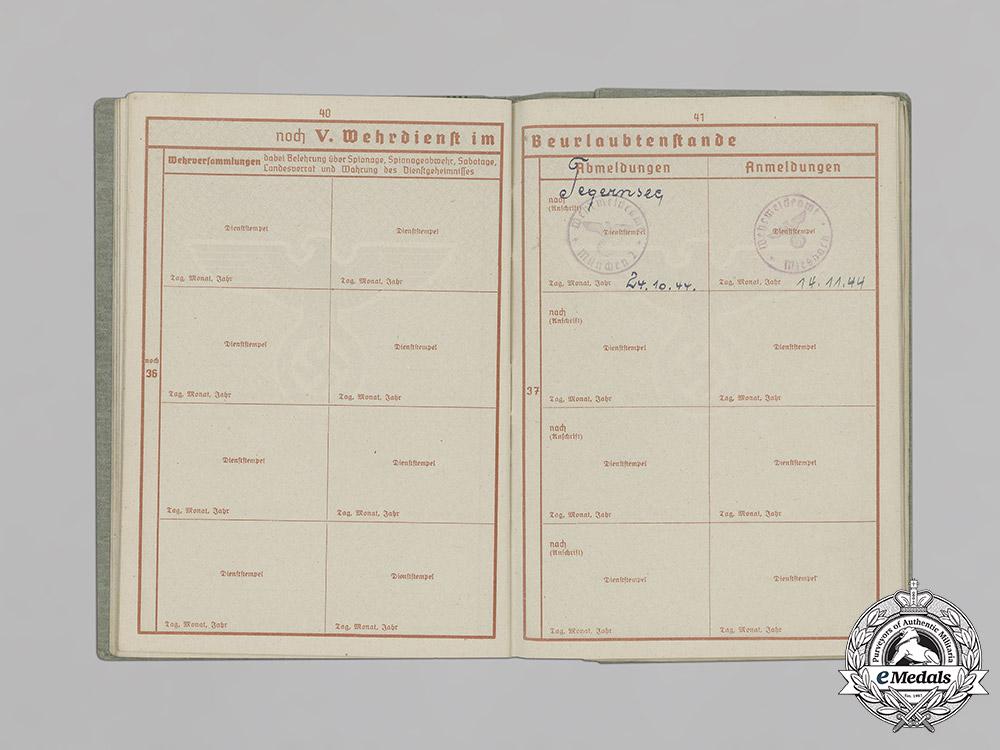 40
noch V. Wehrdienst im
Wehrversammlungen dabei Belehrung über Spionage, Spionageabwehr, Sabotage,
Landesverrat und Wahrung des Dienstgeheimnisses
Dienststempel
Dienststempel
Tag, Monat, Jahr
Tag, Monat, Jahr
noch
36
Dienststempel
Dienststempel
Tag, Monat, Jahr
Tag, Monat, Jahr
Dienststempel
Dienststempel
Tag, Monat, Jahr
Tag, Monat, Jahr
Dienststempel
Dienststempel
Tag, Monat, Jahr
Tag, Monat, Jahr
41
Beurlaubtenstande
Abmeldungen
Anmeldungen
37
Tegernsee
nach
(Anschrift)
Wehrmeldeamt
Dienststempel
München 2
Tag, Monat, Jahr 24.10.44.
Wehrmeldeamt
Dienststempel
Miesbach
Tag, Monat, Jahr 14.11.44
nach
(Anschrift)
Dienststempel
Dienststempel
Tag, Monat, Jahr
Tag, Monat, Jahr
nach
(Anschrift)
Dienststempel
Dienststempel
Tag, Monat, Jahr
Tag, Monat, Jahr
nach
(Anschrift)
Dienststempel
Dienststempel
Tag, Monat, Jahr
Tag, Monat, Jahr
Purveyors of Authentic Militaria
eMedals
Est. 1967